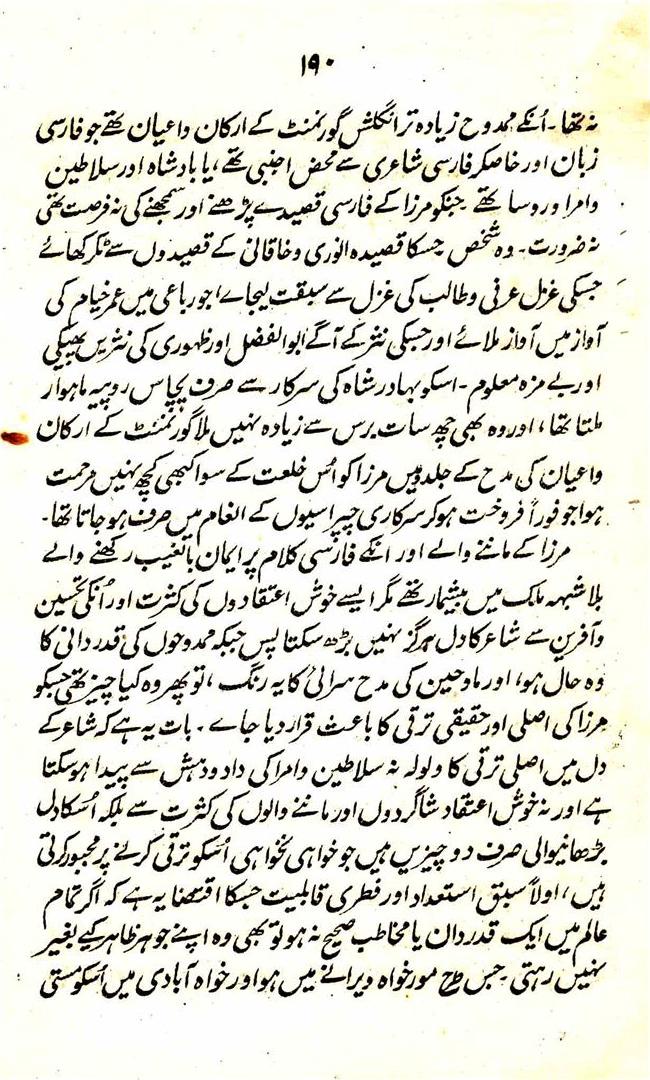 ۱۹۰
نہ تھا۔ اُنکے ممدوح زیادہ تر انگلش گورنمنٹ کے ارکان واعیان تھے جو فارسی
زبان اور خاصکر فارسی شاعری سے محض اجنبی تھے، یا بادشاہ اور سلاطین
وامرا وروسا تھے جنکو مرزا کے فارسی قصیدے پڑھنے اور سمجھنے کی نہ فرصت تھی
نہ ضرورت۔ وہ شخص جسکا قصیدہ انوری وخاقانی کے قصیدوں سے ٹکر کھائے
جسکی غزل عرفی وطالب کی غزل سے سبقت لیجاے، جو رباعی میں عمر خیام کی
آواز میں آواز ملائے اور جسکی نثر کے آگے ابوالفضل اور ظہوری کی نثریں پھیکی
اور بے مزہ معلوم۔ اسکو بہادر شاہ کی سرکار سے صرف پچاس روپیہ ماہوار
ملتا تھا، اور وہ بھی چھ سات برس سے زیادہ نہیں ملا گورنمنٹ کے ارکان
واعیان کی مدح کے جلدو میں مرزا کو اُس خلعت کے سوا کبھی کچھ نہیں مرحمت
ہوا جو فوراً فروخت ہوکر سرکاری چپراسیوں کے انعام میں صرف ہو جاتا تھا۔
مرزا کے ماننے والے اور انکے فارسی کلام پر ایمان بالغیب رکھنے والے
بلاشبہہ ملک میں بیشمار تھے مگر ایسے خوش اعتقادوں کی کثرت اور اُنکی تحسین
وآفرین سے شاعر کا دل ہرگز نہیں بڑھ سکتا پس جبکہ ممدوحوں کی قدردانی کا
وہ حال ہو، اور مادحین کی مدح سرائی کا یہ رنگ، تو پھر وہ کیا چیز تھی جسکو
مرزا کی اصلی اور حقیقی ترقی کا باعث قرار دیا جاے۔ بات یہ ہے کہ شاعر کے
دل میں اصلی ترقی کا ولولہ نہ سلاطین وامرا کی داد ودہش سے پیدا ہو سکتا
ہے اور نہ خوش اعتقاد شاگردوں اور ماننے والوں کی کثرت سے بلکہ اُسکا دل
بڑھانیوالی صرف دو چیزیں ہیں جو خواہی نخواہی اُسکو ترقی کرنے پر مجبور کرتی
ہیں، اولاً سبق استعداد اور فطری قابلیت جسکا اقتضا یہ ہے کہ اگر تمام
عالم میں ایک قدردان یا مخاطب صحیح نہ ہو تو بھی وہ اپنے جوہر ظاہر کیے بغیر
نہیں رہتی جس طرح مور خواہ ویرانے میں ہو اور خواہ آبادی میں اُسکو مستی